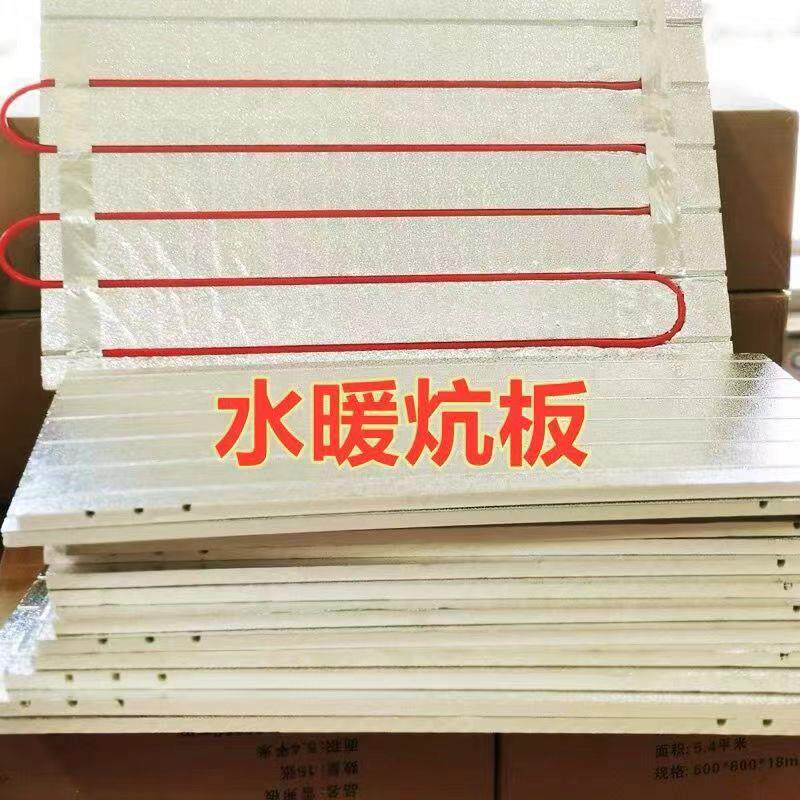 水暖炕板
面积:5.4平米
数量:15张
面积:5.4平米
规格:600*600*18m